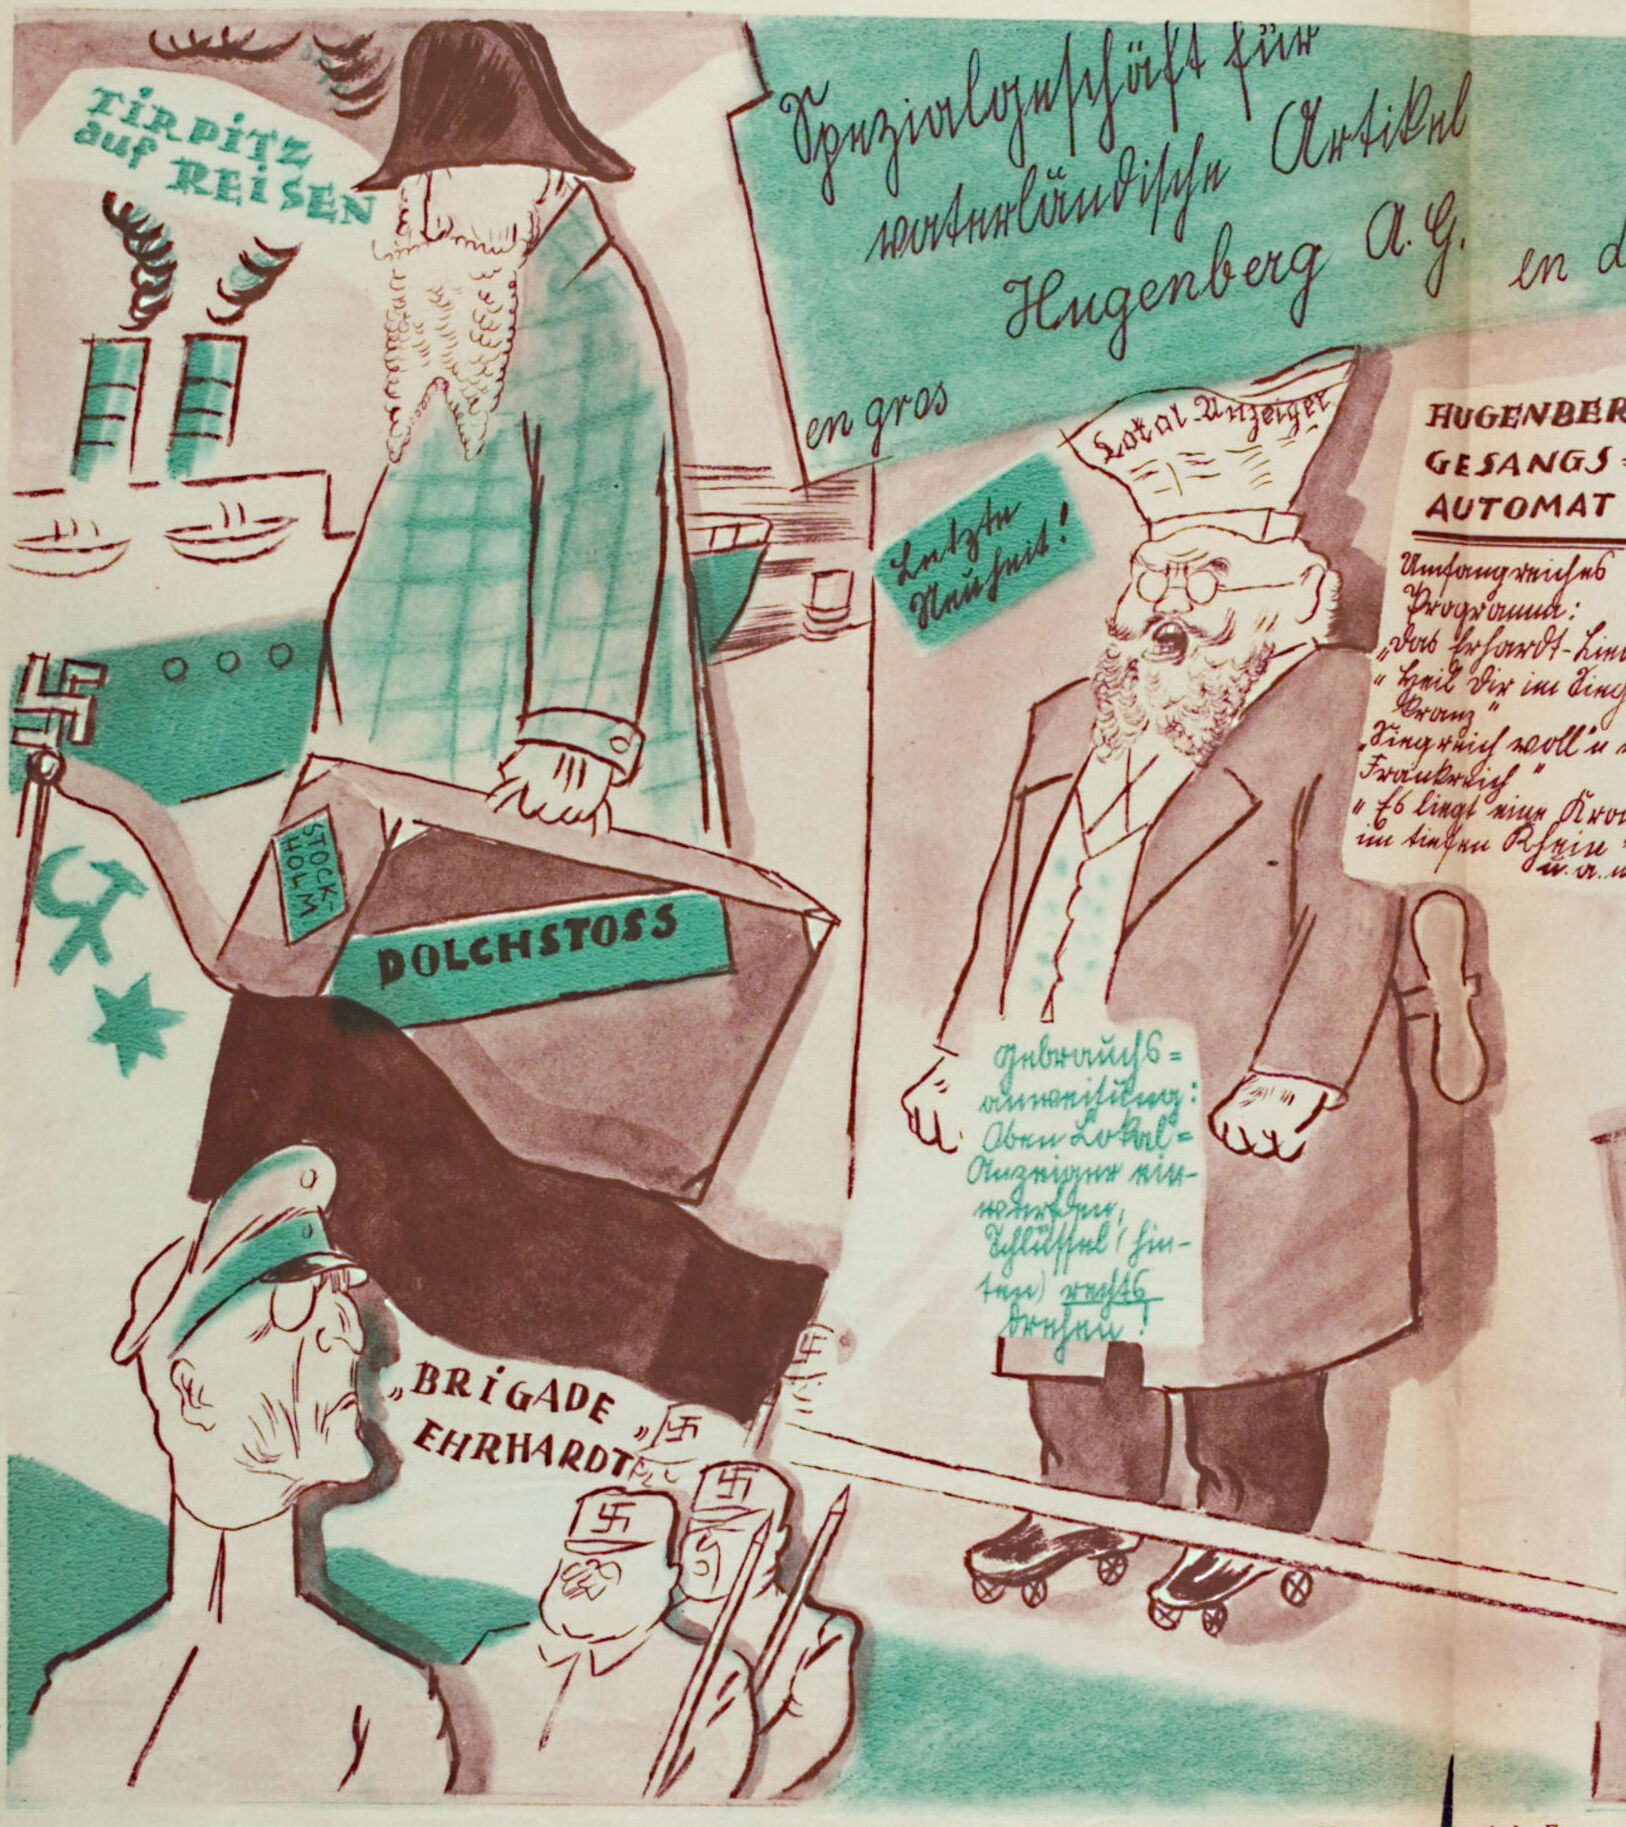 TiRPiTZ
auf REiSEN
Spezialgeschäft für
vaterländische Artikel
Hugenberg A.G.
en gros
en
Lokal-Anzeiger
Letzte
Neuheit!
HUGENBER
GESANGS=
AUTOMAT
Umfangreiches
Programm:
„Das Erhardt-Lied
"Heil Dir im Sieg
kranz"
„Siegreich woll'n
Frankreich"
"Es liegt eine Kro
im tiefen Rhein"
u.a.
STOCK-
HOLM
DOLCHSTOSS
Gebrauchs=
anweisung:
Oben Lokal=
Anzeiger ein-
werfen,
Schlüssel (hin-
ten) rechts
drehen!
„BRiGADE
EHRHARDT"